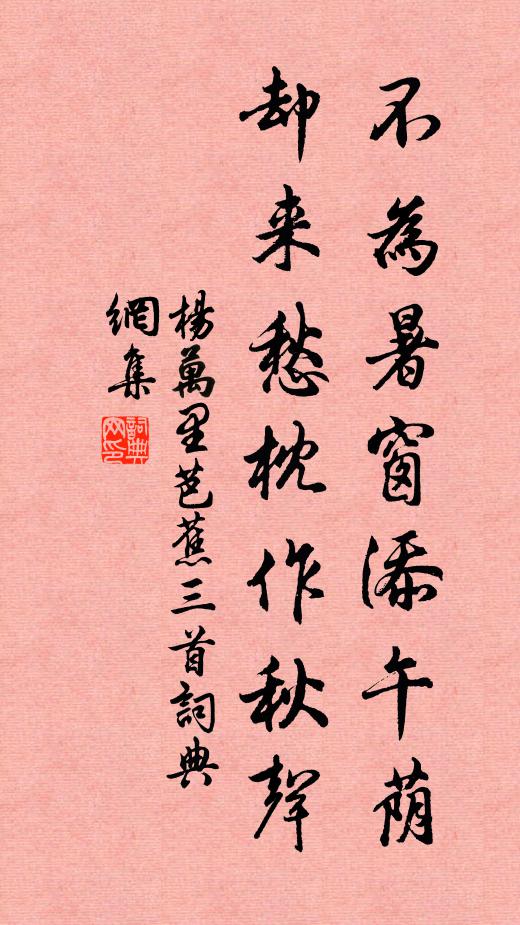 不為暑窗添午蔭
却来愁枕作秋聲
楊萬里芭蕉三首詞典
網集
詞典
网印